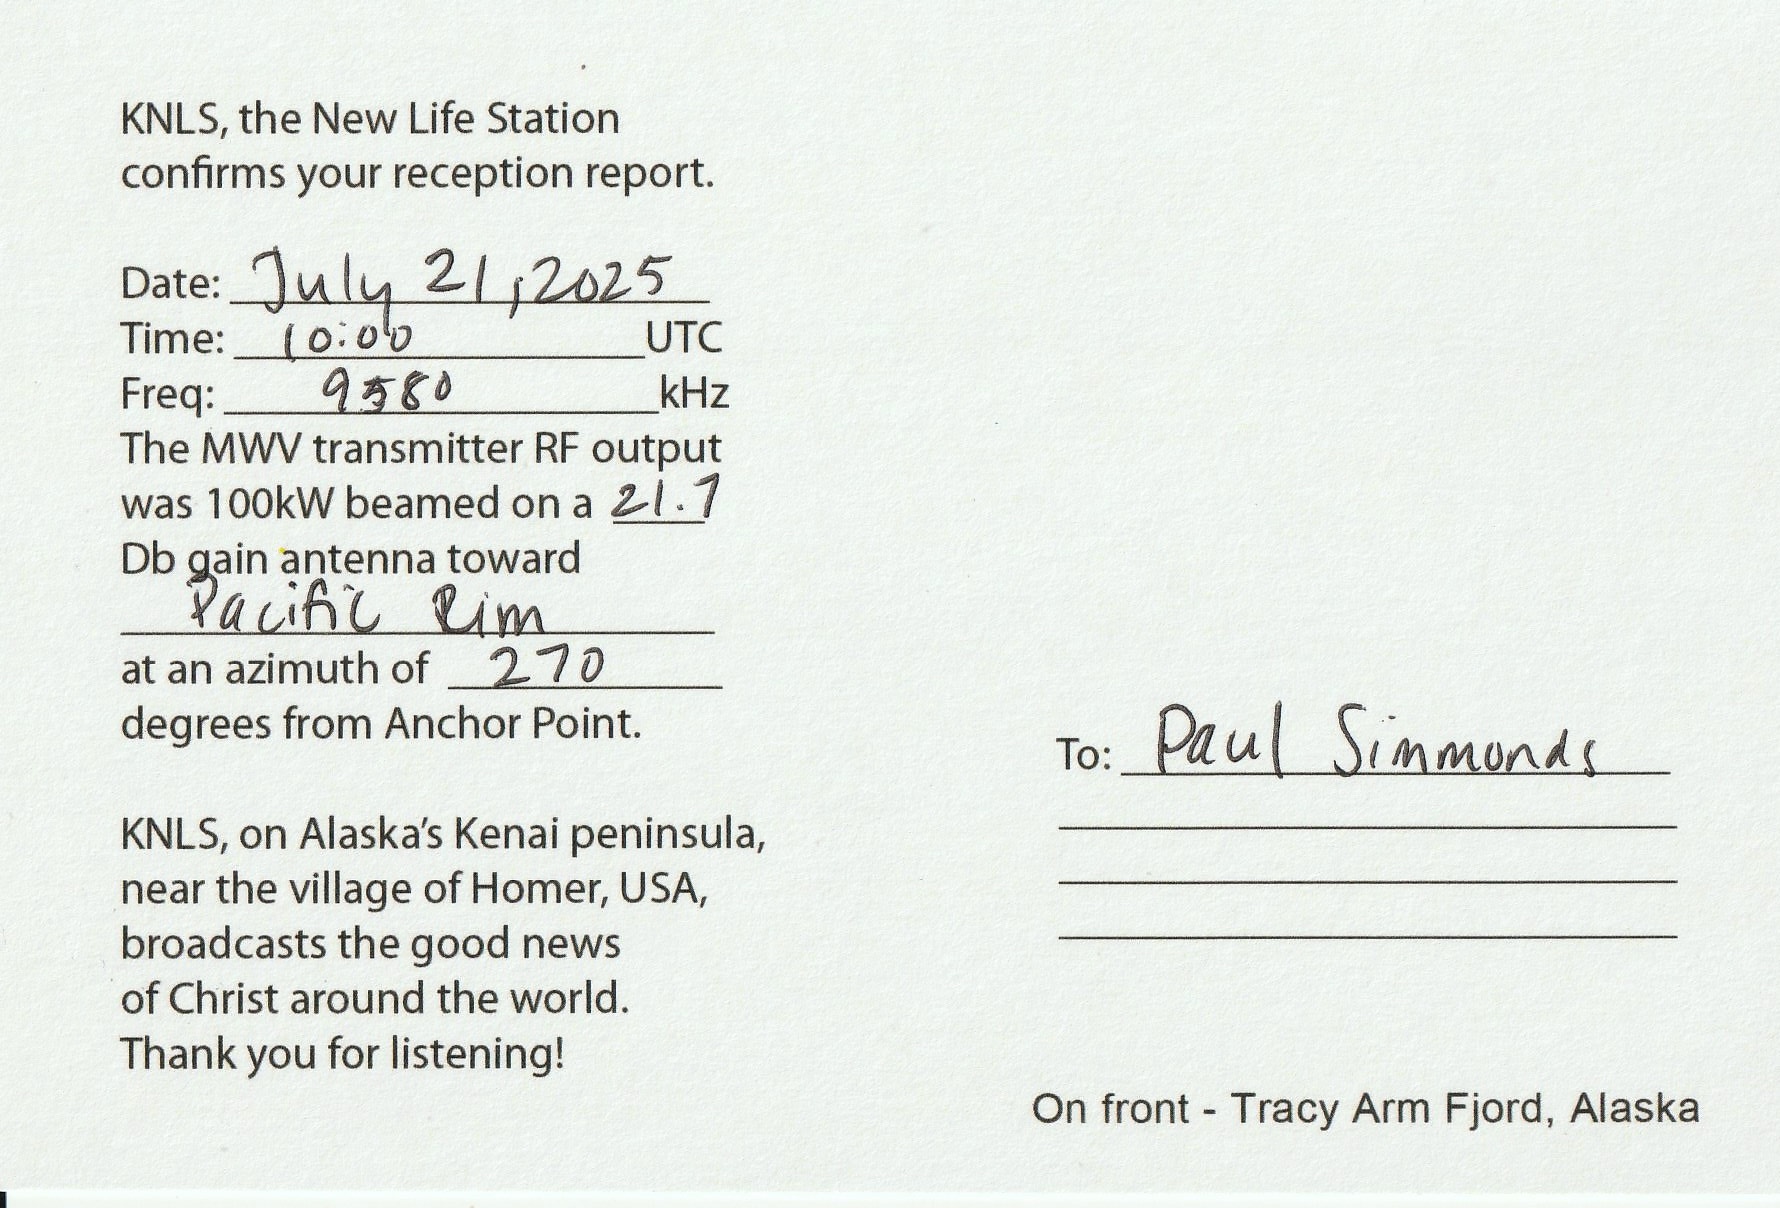 KNLS, the New Life Station
confirms your reception report.
Date: July 21, 2025
Time: 10:00 UTC
Freq: 9580 kHz
The MWV transmitter RF output
was 100kW beamed on a 21.7
Db gain antenna toward
Pacific Rim
at an azimuth of 270
degrees from Anchor Point.
KNLS, on Alaska's Kenai peninsula,
near the village of Homer, USA,
broadcasts the good news
of Christ around the world.
Thank you for listening!
To: Paul Simmonds
On front - Tracy Arm Fjord, Alaska